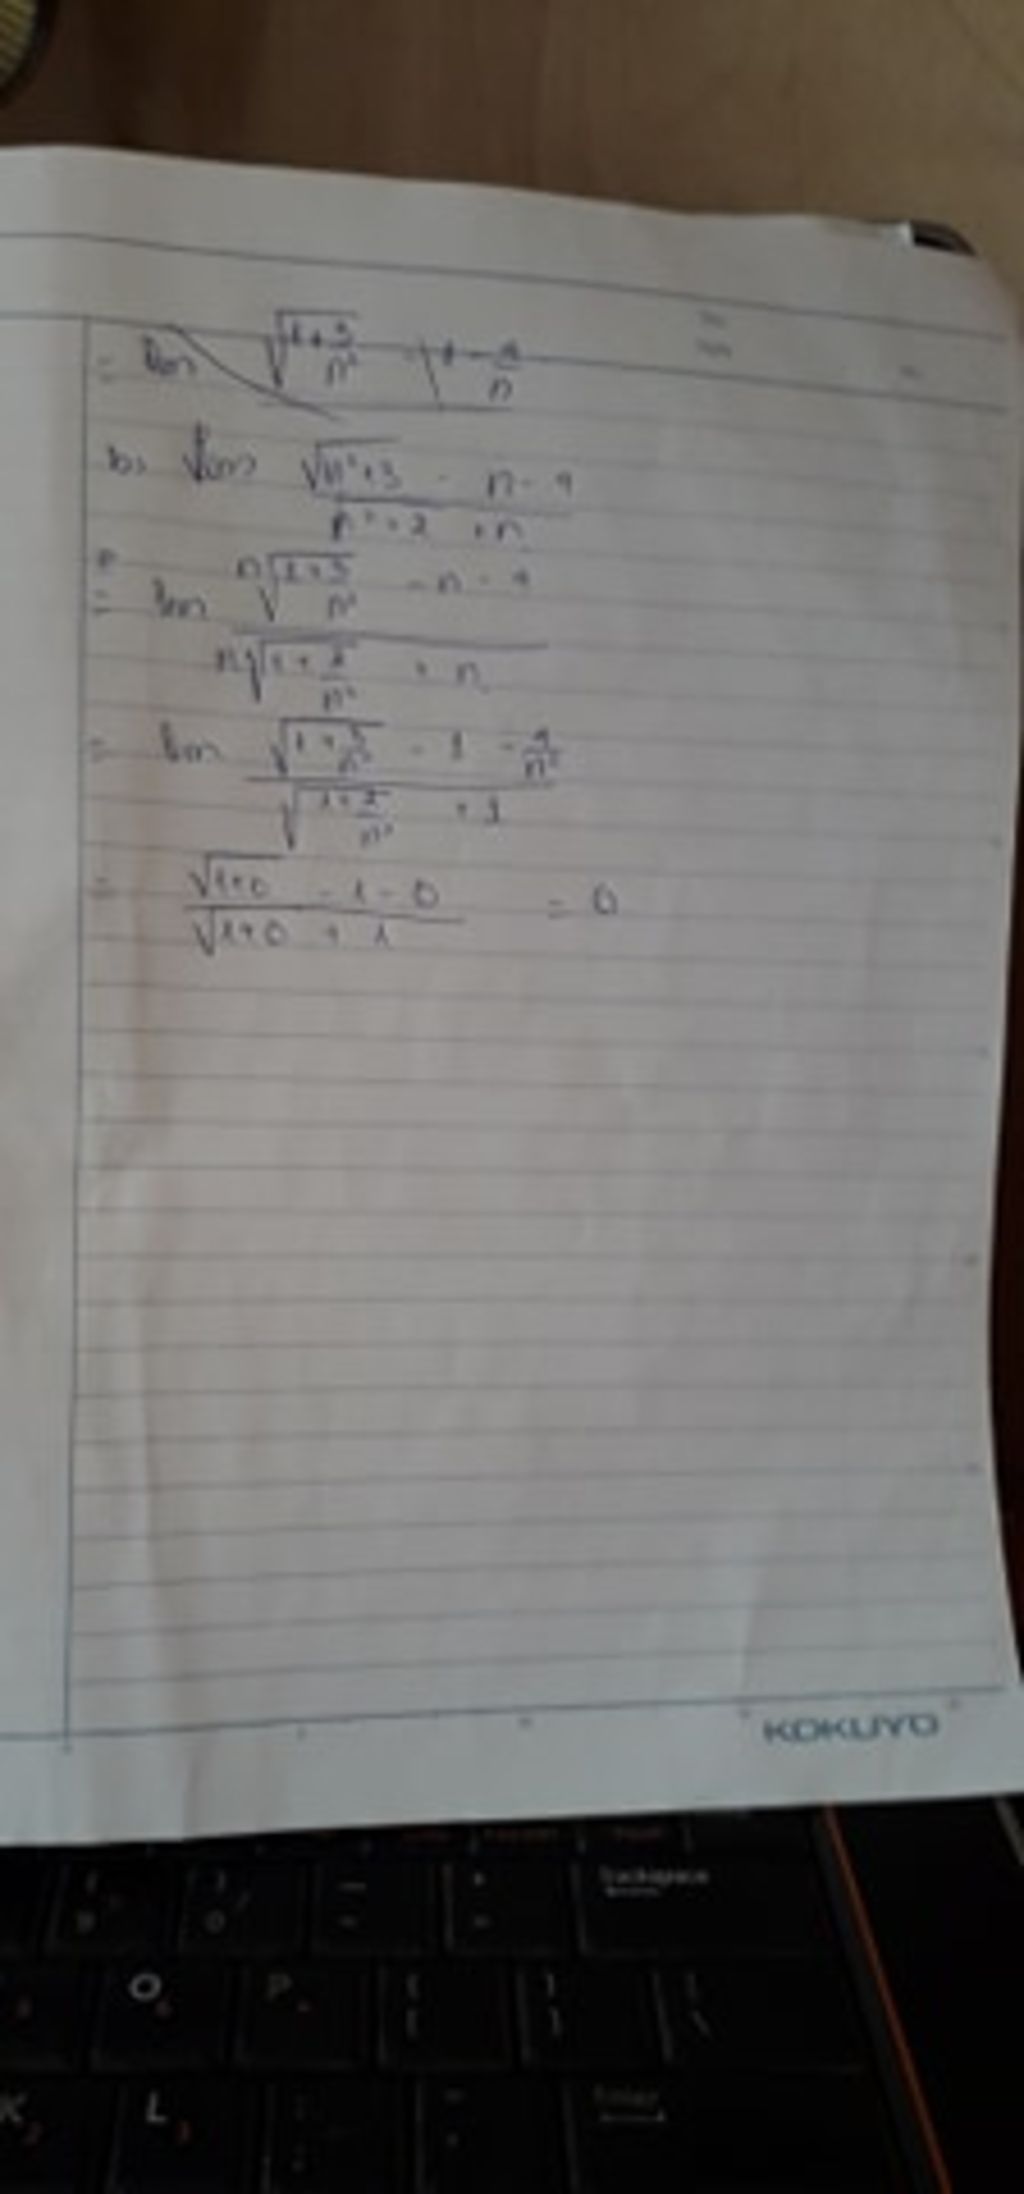 = lim √(1+3/n²) - 1 - 4/n
b) lim (√(n²+3) - n - 4)/(n²+2 + n)
= lim (n√(1+3/n²) - n - 4)/(n√(1+2/n²) + n)
= lim (√(1+3/n²) - 1 - 4/n²)/(√(1+2/n²) + 1)
= (√(1+0) - 1 - 0)/(√(1+0) + 1) = 0
KOKUYO
backspace
O P
K L
Enter